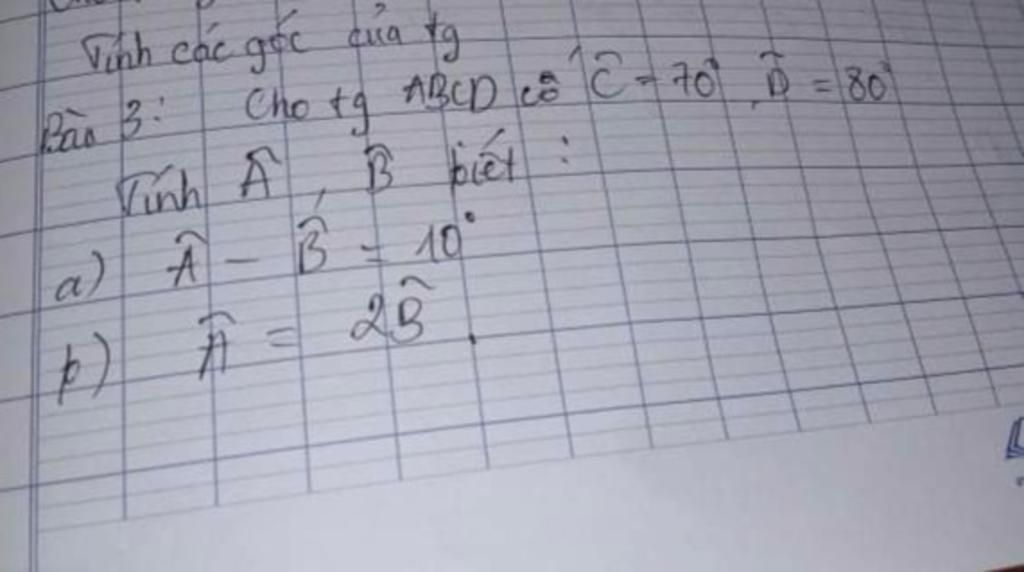 Tính các góc của tg
Bài 3: Cho tg ABCD có Ĉ = 70°, D̂ = 80°
Tính Â, B̂ biết :
a) Â - B̂ = 10°
b) Â = 2B̂.